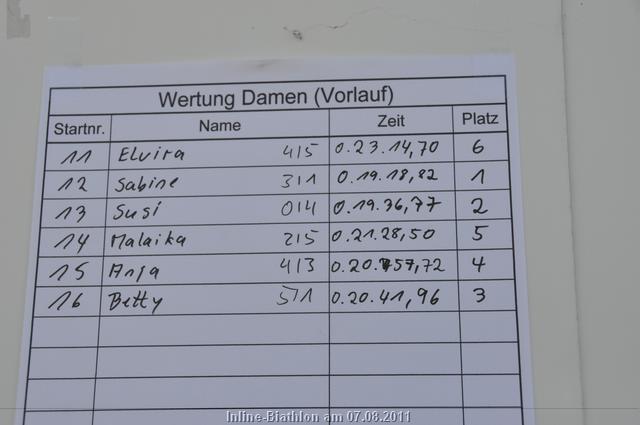 Wertung Damen (Vorlauf)
Startnr. Name Zeit Platz
11 Elvira 415 0.23.14,70 6
12 Sabine 311 0.19.18,82 1
13 Susi 014 0.19.36,77 2
14 Malaika 215 0.21.28,50 5
15 Anja 413 0.20.57,72 4
16 Betty 511 0.20.41,96 3
Inline-Biathlon am 07.08.2011